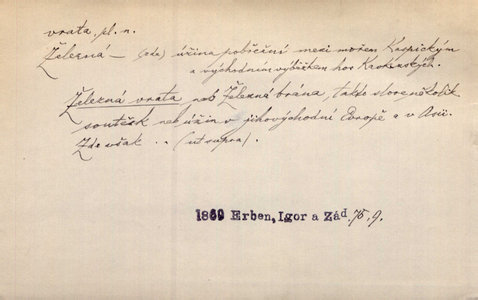 vrata, pl. n.
Železná — (zde) úžina pobřežní mezi mořem Kaspickým
a východním výběžkem hor Kavkazských.
Železná vrata neb Železná brána, takto slove několik
soutěsk neb úžin v jihovýchodní Evropě a v Asii.
Zde však .. (ut supra).
1869 Erben, Igor a Zád. 75, 9.